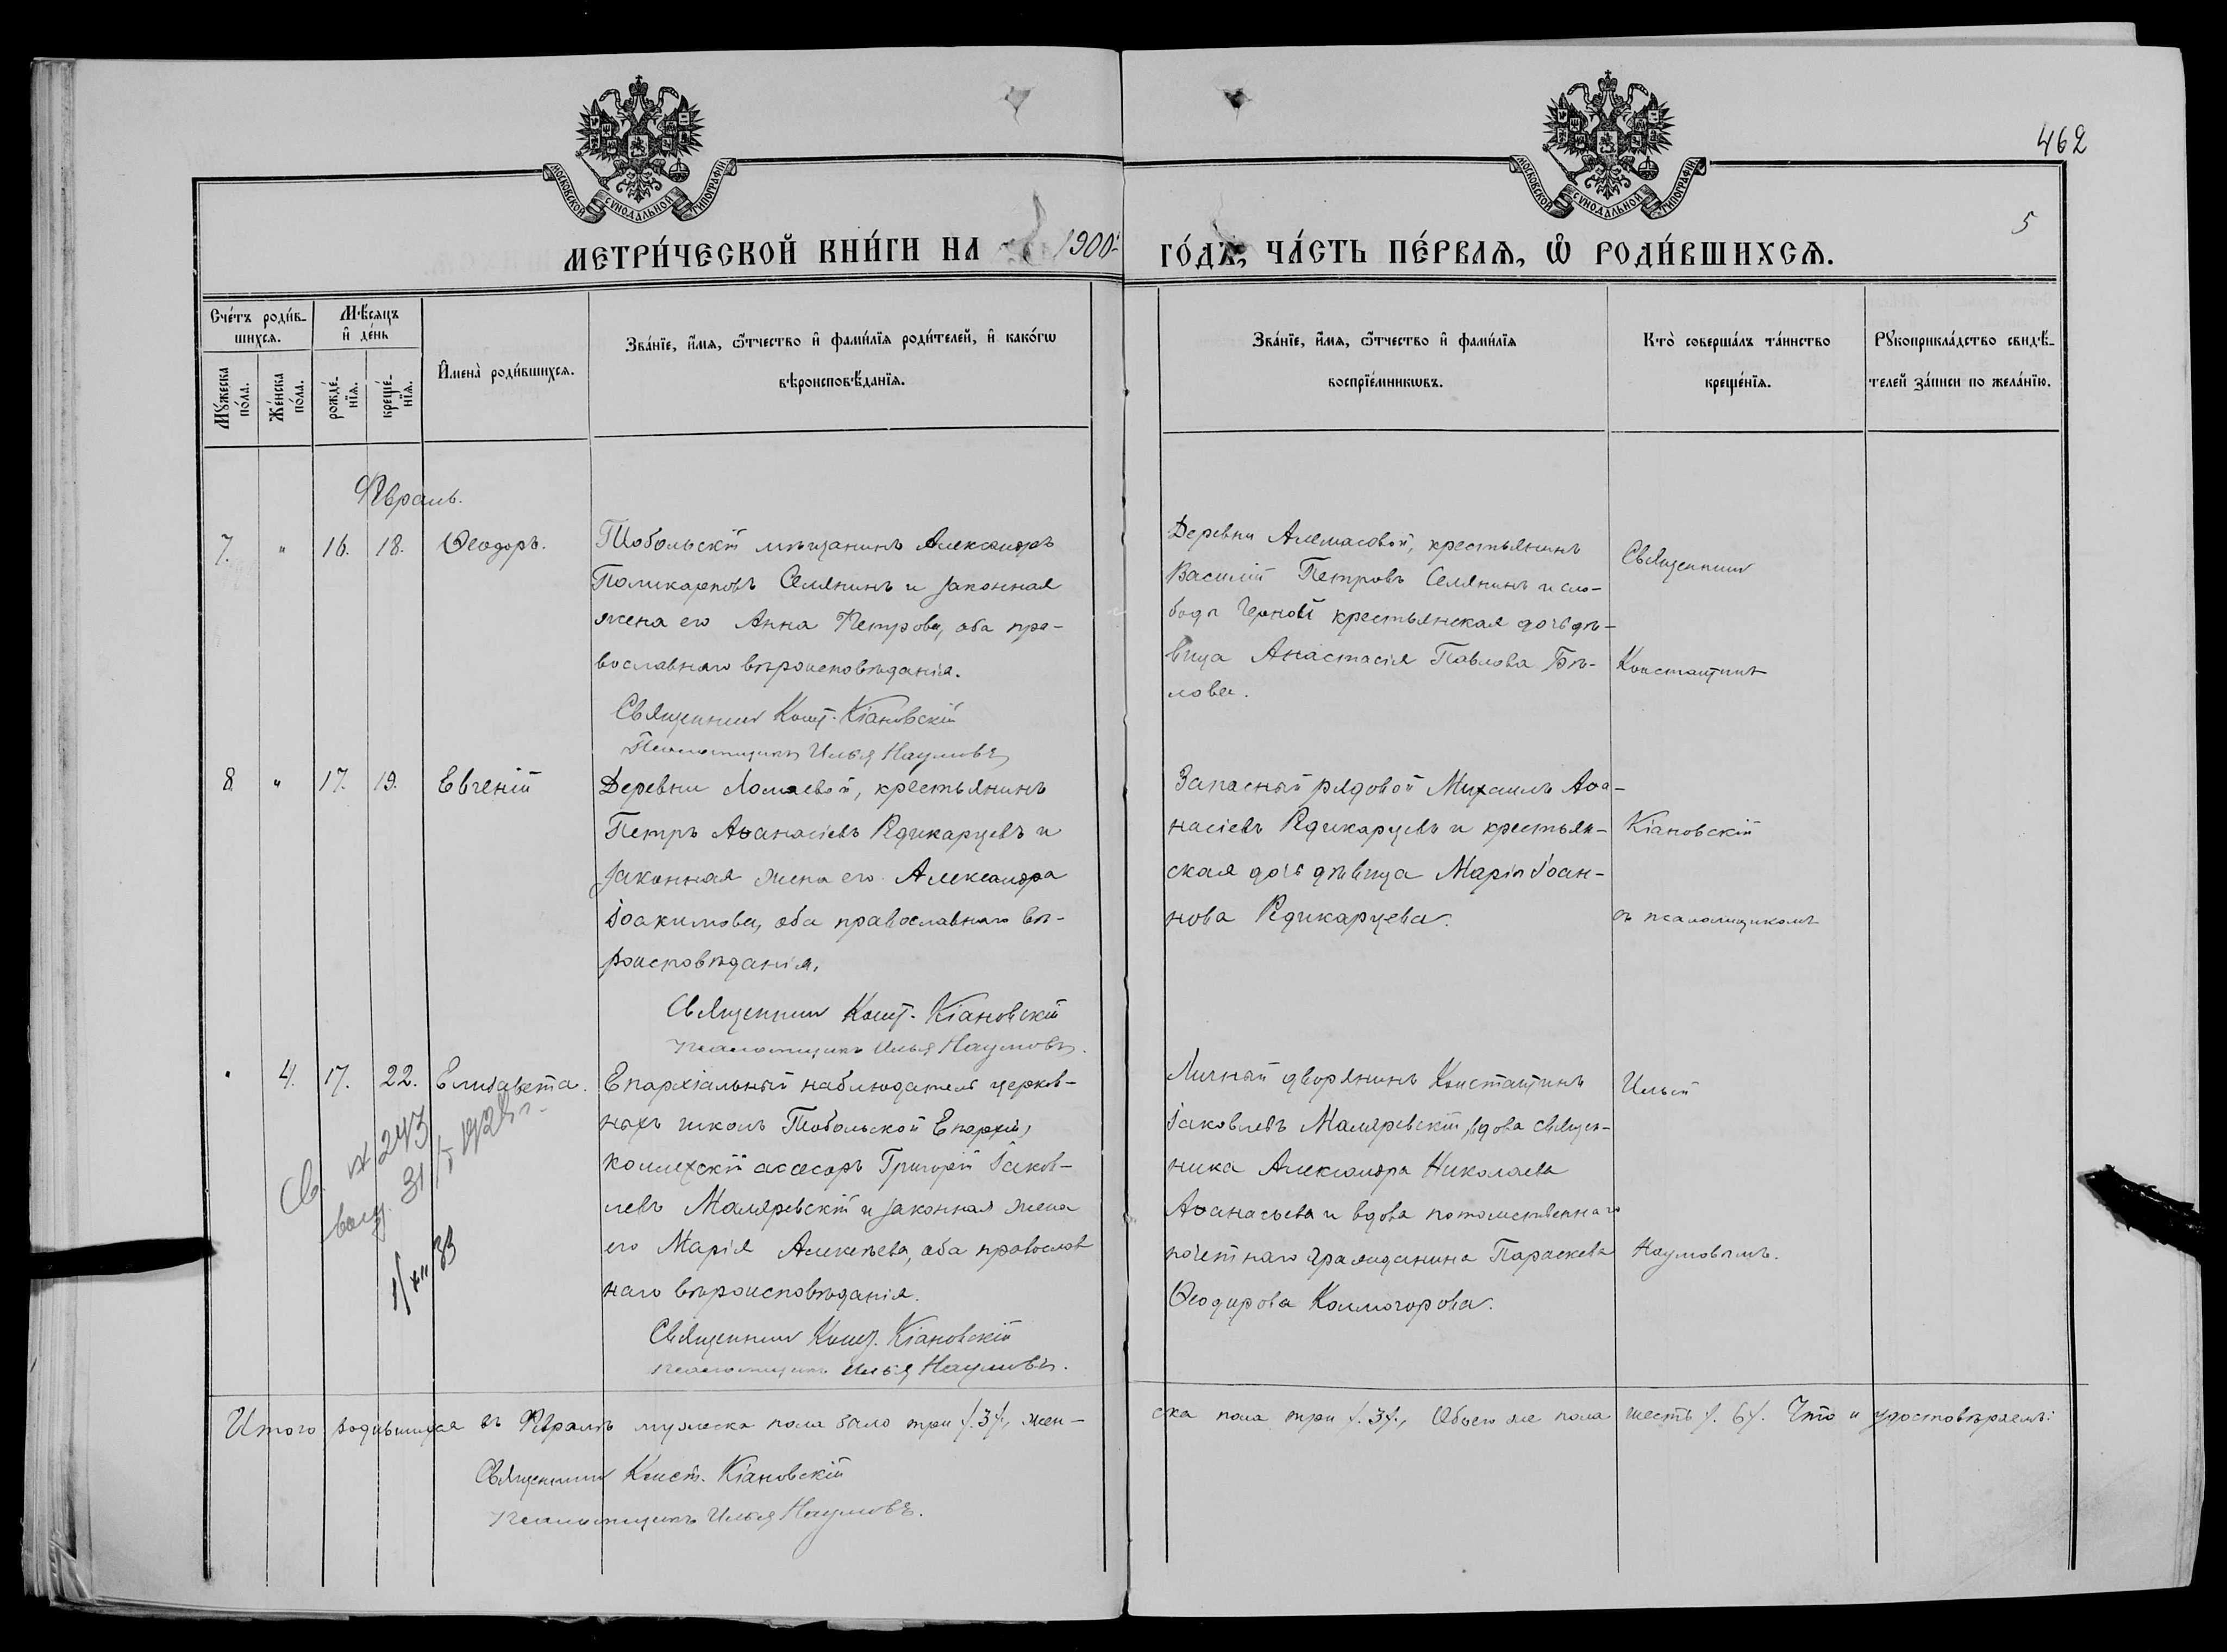 462
5
МОСКОВСКОЙ СѴНОДАЛЬНОЙ ТИПОГРАФІИ
МОСКОВСКОЙ СѴНОДАЛЬНОЙ ТИПОГРАФІИ
МЕТРИ́ЧЕСКОЙ КНИ́ГИ НА 1900 ГО́ДЪ, ЧА́СТЬ ПЕ́РВАѦ, Ѡ҆ РОДИ́ВШИХСѦ.
Сче́тъ роди́в-
шихсѧ.
Мꙋ́жеска по́ла.
Же́нска по́ла.
Мѣ́сѧцъ
и҆ де́нь
рожде́-
нїѧ.
креще́-
нїѧ.
И҆мена̀ роди́вшихсѧ.
Зва́нїе, и҆́мѧ, ѻ҆́тчество и҆ фами́лїѧ роди́телей, и҆ како́гѡ
вѣроисповѣ́данїѧ.
Зва́нїе, и҆́мѧ, ѻ҆́тчество и҆ фами́лїѧ
воспрїе́мникѡвъ.
Кто̀ соверша́лъ та́инство
креще́нїѧ.
Рꙋкоприкла́дство свидѣ́-
телей за́писи по жела́нїю.
Февраль.
7. " 16. 18. Ѳеодоръ.
Тобольскій мѣщанинъ Александръ
Поликарповъ Семянинъ и законная
жена его Анна Петрова, оба пра-
вославнаго вѣроисповѣданія.
Священникъ Конст. Кіановскій
Псаломщикъ Илья Наумовъ
Деревни Алемасовой, крестьянинъ
Василій Петровъ Семянинъ и сло-
боды Черной крестьянская дочь дѣ-
вица Анастасія Павлова Бѣ-
лова.
Священникъ
Константинъ
8 " 17. 19. Евгеній
Деревни Ломаевой, крестьянинъ
Петръ Аѳанасіевъ Редикарцевъ и
законная жена его Александра
Іоакимова, оба православнаго вѣ-
роисповѣданія.
Священникъ Конст. Кіановскій
Псаломщикъ Илья Наумовъ.
Запасный рядовой Михаилъ Аѳа-
насіевъ Редикарцевъ и крестьян-
ская дочь дѣвица Марія Іоан-
нова Редикарцева.
Кіановскій
съ псаломщикомъ
" 4. 17. 22. Елисавета.
Епархіальный наблюдатель церков-
ныхъ школъ Тобольской Епархіи,
коллежскій ассесоръ Григорій Іаков-
левъ Маляревскій и законная жена
его Марія Алексѣева, оба православ
наго вѣроисповѣданія.
Священникъ Конст. Кіановскій
Псаломщикъ Илья Наумовъ.
Личный дворянинъ Константинъ
Іаковлевъ Маляревскій, вдова священ-
ника Александра Николаева
Аѳанасьева и вдова потомственнаго
почетнаго гражданина Параскева
Ѳеодорова Колмогорова.
Ильей
Наумовымъ.
Св. № 243
выд. 31/I 1928 г.
1/XII 33
Итого родившихся въ Февралѣ мужеска пола было три /.3/., жен-
ска пола три /.3/., Обоего же пола шесть /. 6/. Что и удостовѣряемъ:
Священникъ Конст. Кіановскій
Псаломщикъ Илья Наумовъ.